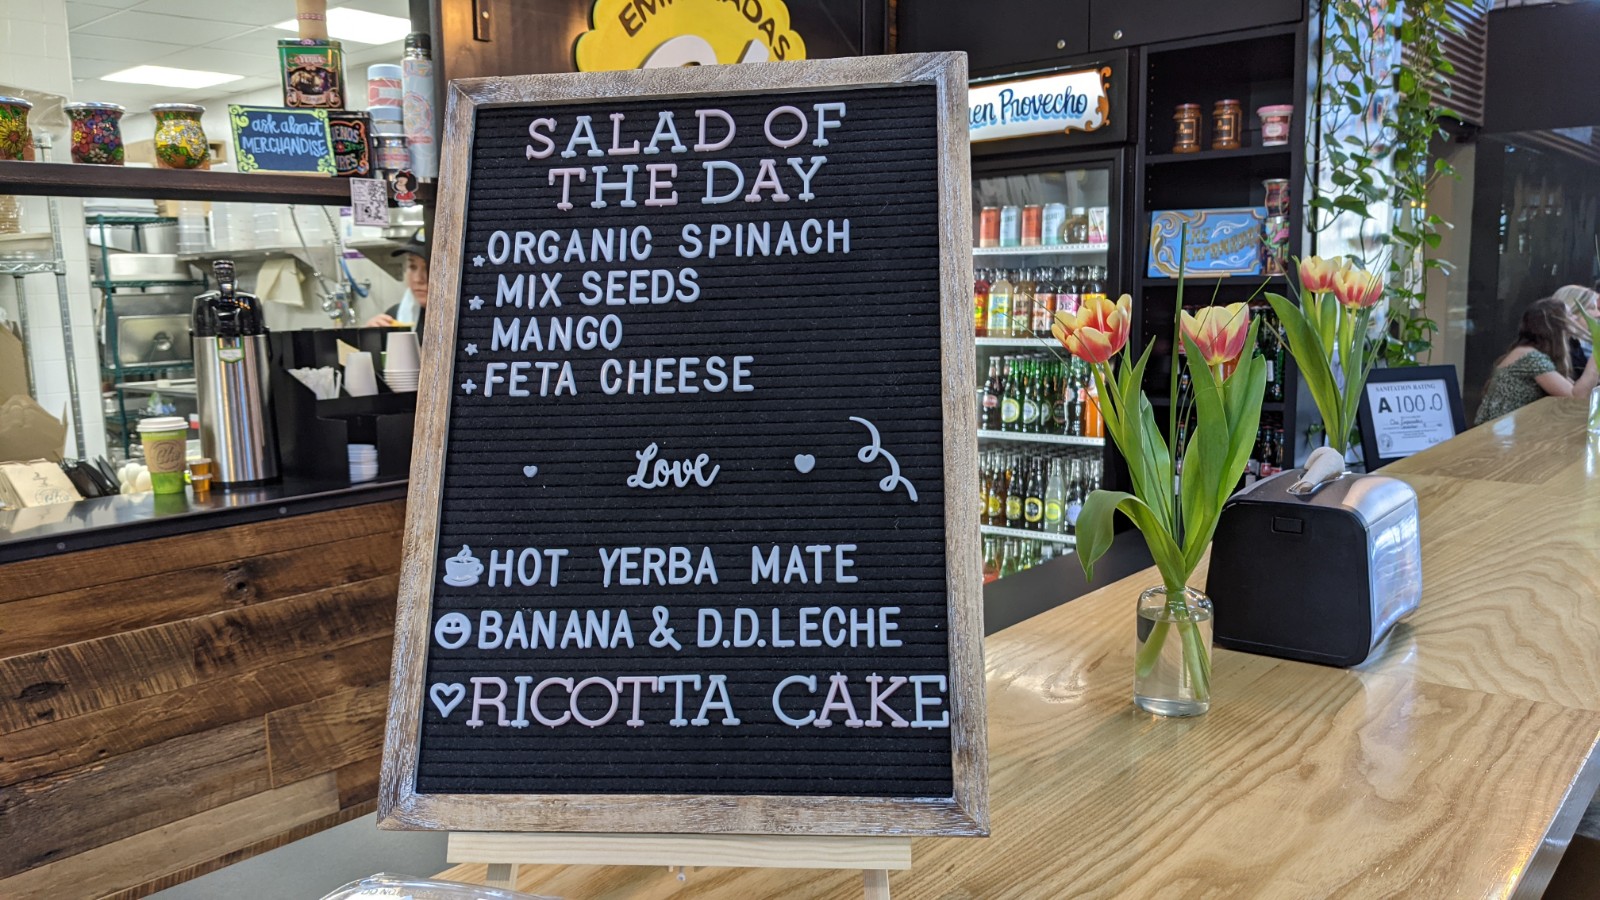 SALAD OF
THE DAY
ORGANIC SPINACH
MIX SEEDS
MANGO
FETA CHEESE
Love
HOT YERBA MATE
BANANA & D.D.LECHE
RICOTTA CAKE
ask about
MERCHANDISE
Provecho
SANITATION RATING
A 100.0